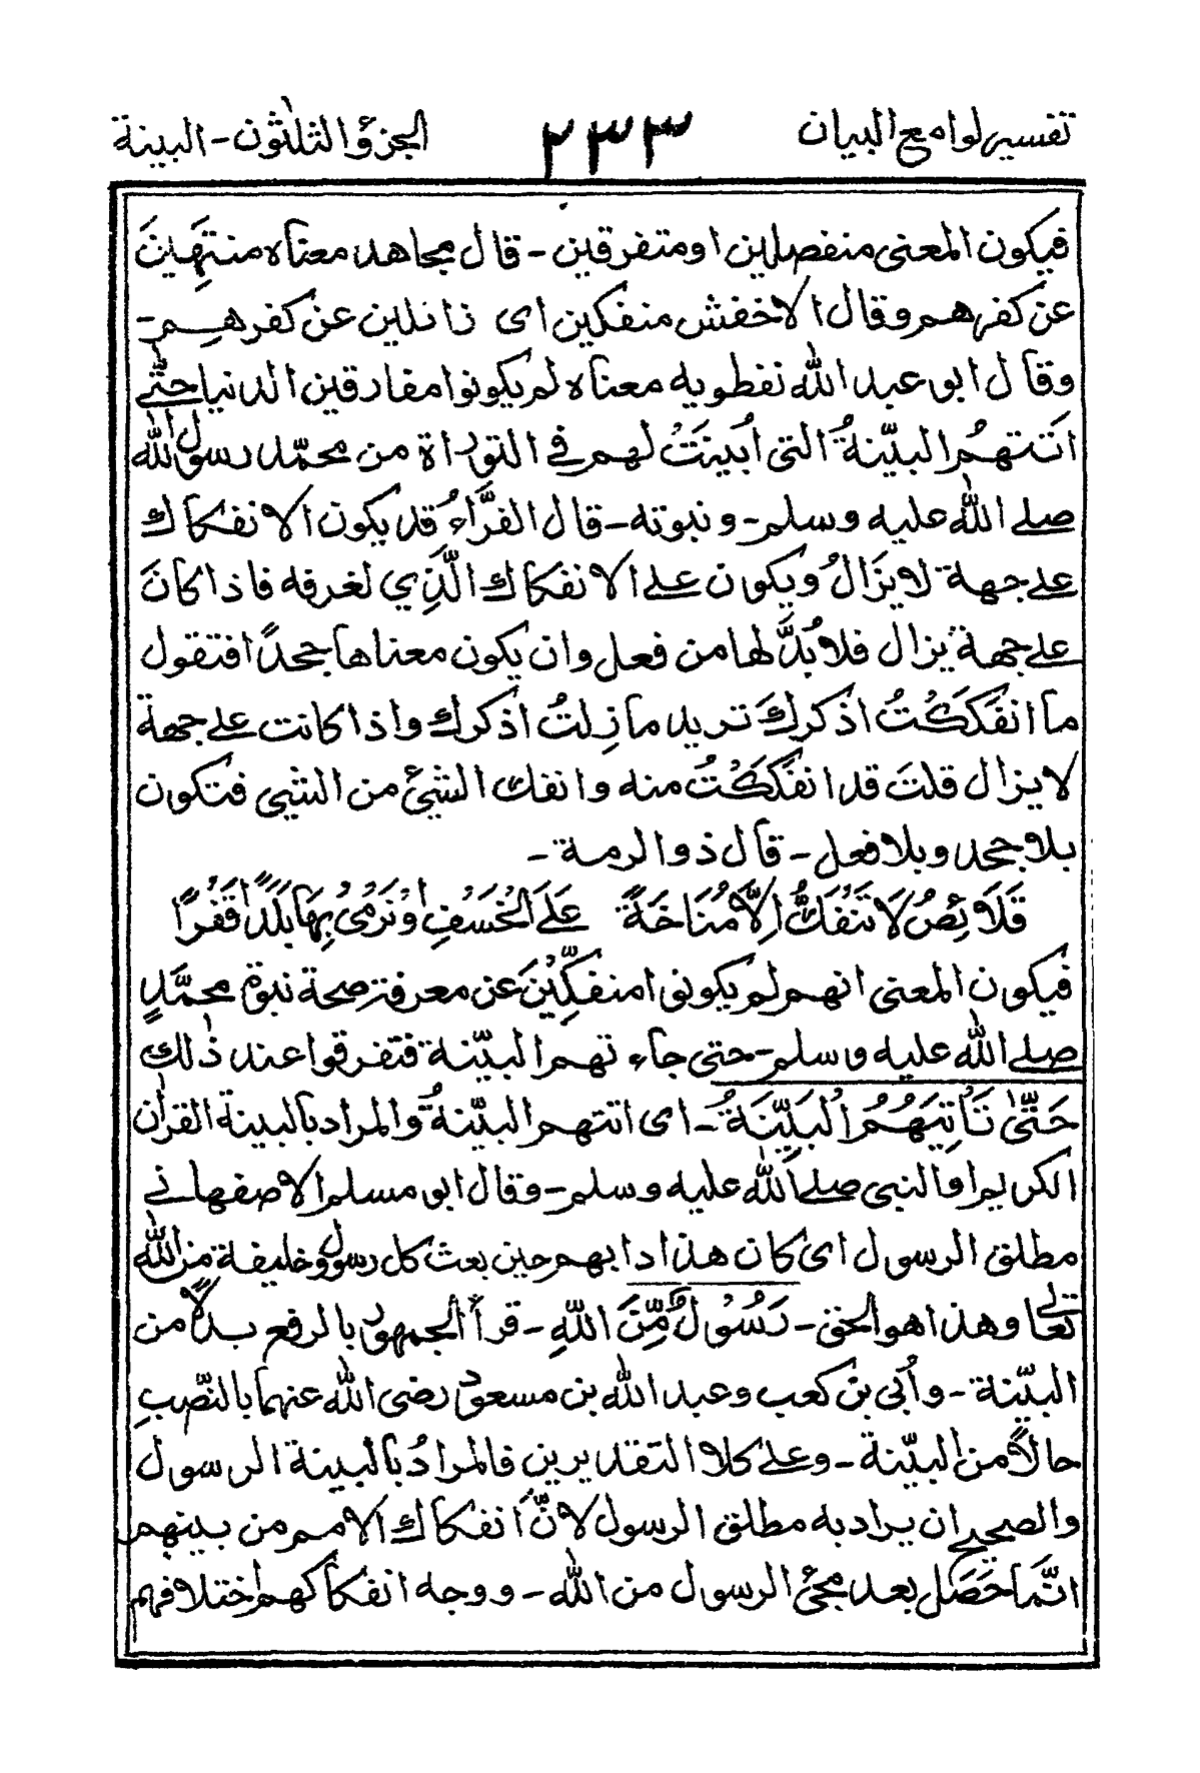 تفسير لوامع البيان ٢٣٣ الجزؤ الثلٰثون - البينة
فيكون المعنى منفصلين او متفرقين - قال مجاهد معناه منتهِينَ
عن كفرهم وقال الاخفش منفكين اى زائلين عن كفرهم -
وقال ابو عبد الله نفطويه معناه لم يكونوا مفارقين الدنيا حتّٰے
اتتهمُ البيّنةُ التى اُبينَتْ لهم فے التوراة من محمّد رسول الله
صلے الله عليه وسلم - ونبوته - قال الفَرَّاءُ قد يكون الانفكاك
علے جهة لا يزالُ ويكون علے الانفكاك الَّذِي لغرفه فاذا كانَ
علے جهة يزال فلا بُدَّ لها من فعل وان يكون معناها جحدًا فتقول
ما انفكَكْتُ اذكركَ تريد ما زِلتُ اذكرك واذا كانت علے جهة
لا يزال قلتَ قد انفَكَكْتُ منه وانفك الشئ من الشئ فتكون
بلا جحد وبلا فعل - قال ذو الرمة -
قَلَائِصُ لَا تَنْفَكُّ اِلَّا مُنَاخَةً عَلَى الخَسْفِ اَوْ نَرْمِىْ بِهَا بَلَدًا قَفْرًا
فيكون المعنى انهم لم يكونوا منفكِّيْنَ عن معرفة صحة نبوة محمَّدٍ
صلے الله عليه وسلم - حتى جاءتهم البيّنة فتفرقوا عند ذٰلك
حَتّٰى تَأْتِيَهُمُ الْبَيِّنَةُ - اى اتتهم البيّنةُ والمراد بالبينة القراٰن
الكريم او النبى صلے الله عليه وسلم - وقال ابو مسلم الاصفهانے
مطلق الرسول اى كان هذا دابهم حين بعث كل رسول وخليفة من الله
تعالے وهذا هو الحق - رَسُوْلٌ مِّنَ اللّٰهِ - قرأ الجمهور بالرفع بدلًا من
البيّنة - واُبى بن كعب وعبد الله بن مسعود رضى الله عنهما بالنّصبِ
حالًا من البيّنة - وعلے كلا التقديرين فالمرادُ بالبينة الرسول
والصحيح ان يراد به مطلق الرسول لانّ انفكاك الامم من بينهم
انَّما حَصَل بعد مجئ الرسول من الله - ووجه انفكاكهم اختلافهم